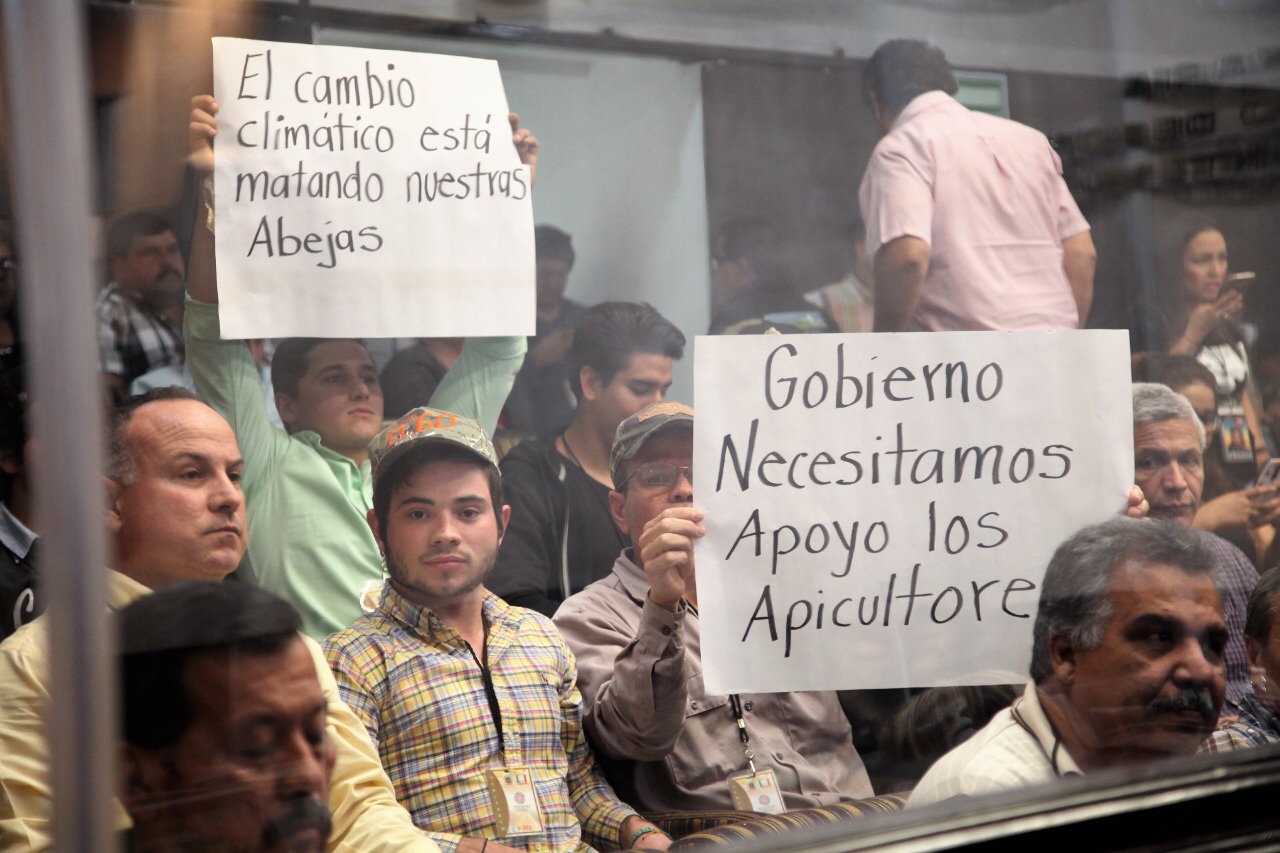 El cambio
climático está
matando nuestras
Abejas
Gobierno
Necesitamos
Apoyo los
Apicultore